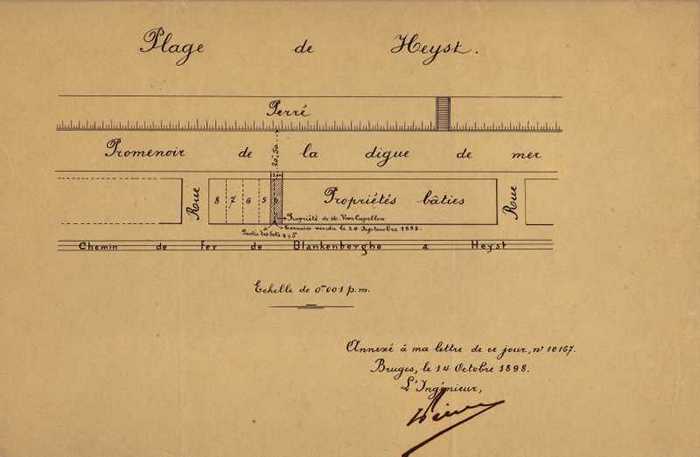 Plage de Heyst.
Perré
20,50
Promenoir de la digue de mer
Rue
8 7 6 5
Propriétés bâties
Rue
Propriété de M. Van Capellen
vendu le 20 Septembre 1898.
Partie des lots 4 & 5
Chemin de Fer de Blankenberghe à Heyst
Echelle de 0m001 p.m.
Annexé à ma lettre de ce jour, n° 10167.
Bruges, le 14 Octobre 1898.
L'Ingénieur,